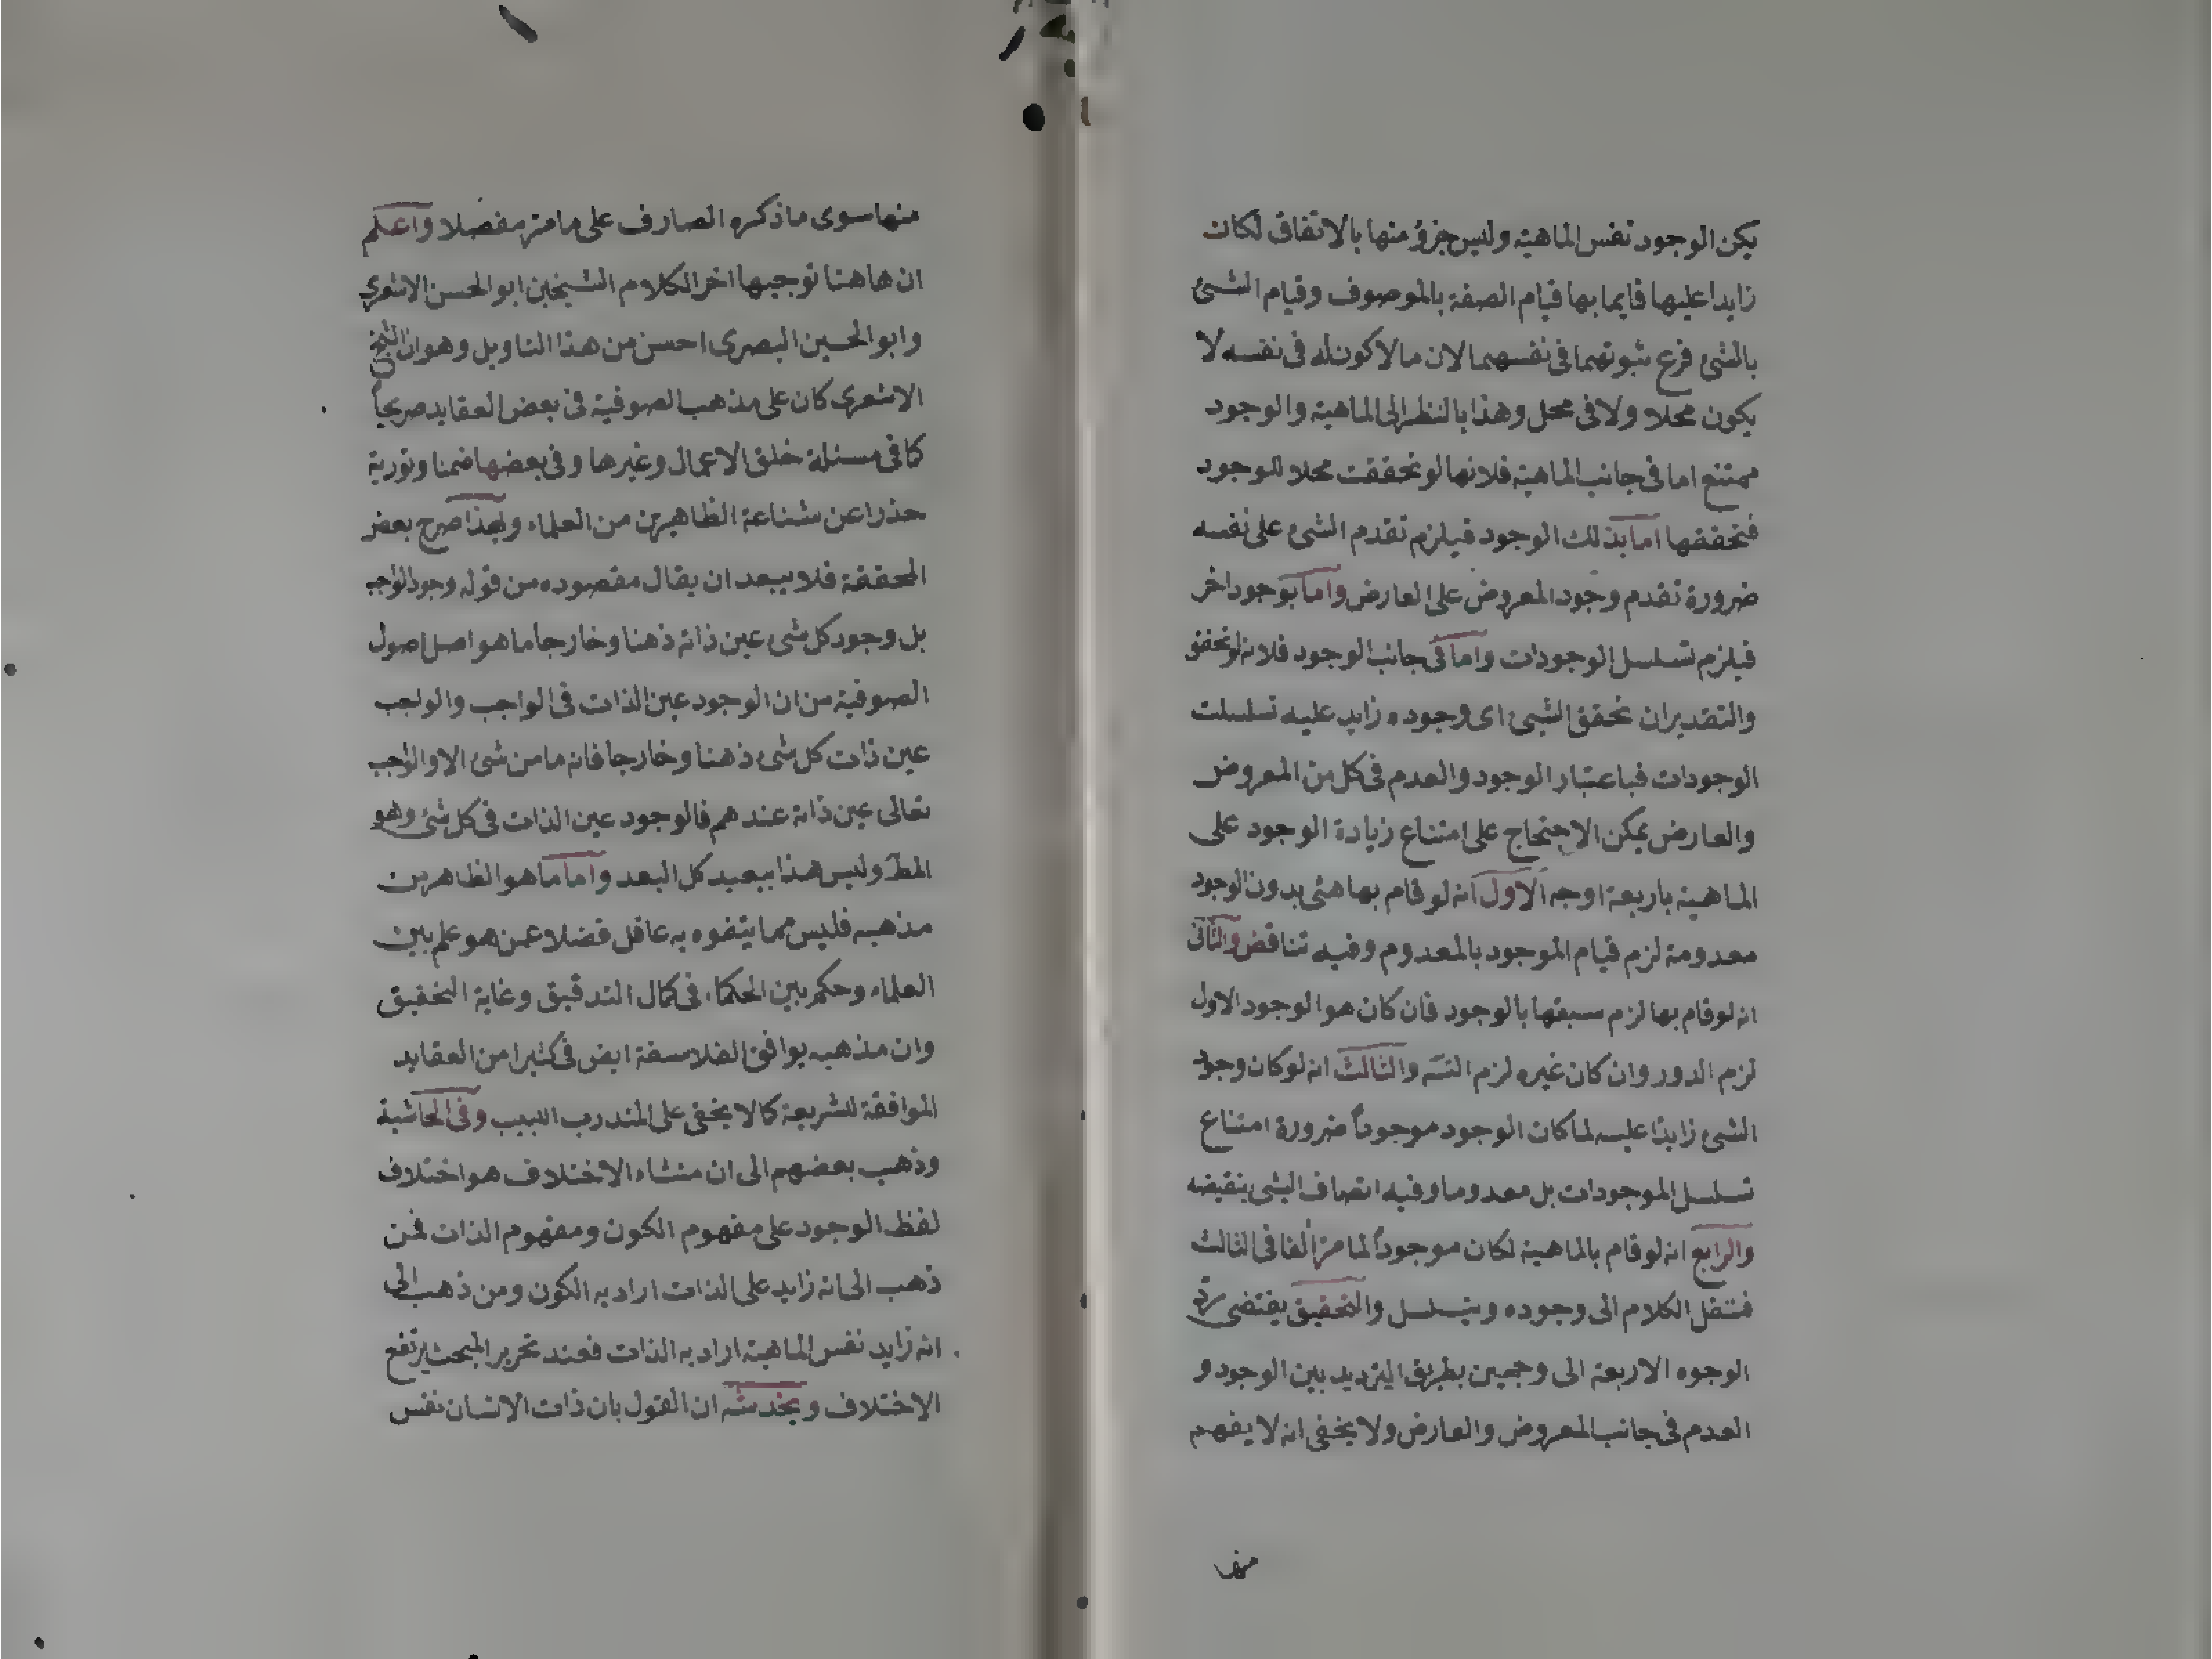 يكن الوجود نفس الماهية وليس جزؤ منها بالاتفاق لكان
زايدا عليها قايما بها قيام الصفة بالموصوف وقيام الشئ
بالشئ فرع ثبوتهما فى نفسهما لان ما لا كون له فى نفسه لا
يكون محلا ولا فى محل وهذا بالنظر الى الماهية والوجود
ممتنع اما فى جانب الماهية فلانها لو تحققت محلا للوجود
فتحققها اما بذلك الوجود فيلزم تقدم الشئ على نفسه
ضرورة تقدم وجود المعروض على العارض واما بوجود اخر
فيلزم تسلسل الوجودات واما فى جانب الوجود فلانه لو تحقق
والتقدير ان تحقق الشئ اى وجوده زايد عليه تسلسلت
الوجودات فباعتبار الوجود والعدم فى كل من المعروض
والعارض يمكن الاحتجاج على امتناع زيادة الوجود على
الماهية باربعة اوجه الاول انه لو قام بها هئى بدون الوجود
معدومة لزم قيام الموجود بالمعدوم وفيه تناقض والثانى
انه لو قام بها لزم سبقها بالوجود فان كان هو الوجود الاول
لزم الدور وان كان غيره لزم التسّ والثالث انه لو كان وجود
الشئ زايدًا عليه لما كان الوجود موجوداً ضرورة امتناع
تسلسل الموجودات بل معدوما وفيه اتصاف الشئ بنقيضه
والرابع انه لو قام بالماهية لكان موجوداً لما مرّ أنفا فى الثالث
فننقل الكلام الى وجوده ويتسلسل والتحقيق يقتضى ردّ
الوجوه الاربعة الى وجهين بطريق الترديد بين الوجود و
العدم فى جانب المعروض والعارض ولا يخفى انه لا يفهم
منها
منها سوى ما ذكره الصارف على ما مرّ مفصلا واعلم
ان هاهنا توجيها اخر الكلام الشيخين ابو الحسن الاشعرى
وابو الحسين البصرى احسن من هذا التاويل وهو ان الشيخ
الاشعرى كان على مذهب الصوفية فى بعض العقايد صريحاً
كما فى مسئلة خلق الاعمال وغيرها وفى بعضها ضمنا وتورية
حذرا عن شناعة الظاهرين من العلماء وبهذا صرح بعض
المحققة فلا يبعد ان يقال مقصوده من قوله وجود الواجب
بل وجود كل شئ عين ذاته ذهنا وخارجا ما هو اصل اصول
الصوفية من ان الوجود عين الذات فى الواجب والواجب
عين ذات كل شئ ذهنا وخارجا فانه ما من شئ الا والواجب
تعالى عين ذاته عندهم فالوجود عين الذات فى كل شئ وهو
المطّ وليس هذا ببعيد كل البعد واما ما هو الظاهر من
مذهبه فليس مما يتفوه به عاقل فضلا عمن هو علم بين
العلماء وحكم بين الحكماء فى كمال التدقيق وغاية التحقيق
وان مذهبه يوافق الفلاسفة ايض فى كثيرا من العقايد
الموافقة للشريعة كما لا يخفى على المتدرب اللبيب وفى الحاشية
وذهب بعضهم الى ان منشاء الاختلاف هو اختلاف
لفظ الوجود على مفهوم الكون ومفهوم الذات فمن
ذهب الى انه زايد على الذات اراد به الكون ومن ذهب الى
انه زايد نفس الماهية اراد به الذات فعند تحرير المبحث يرتفع
الاختلاف ويخدشه ان القول بان ذات الانسان نفس